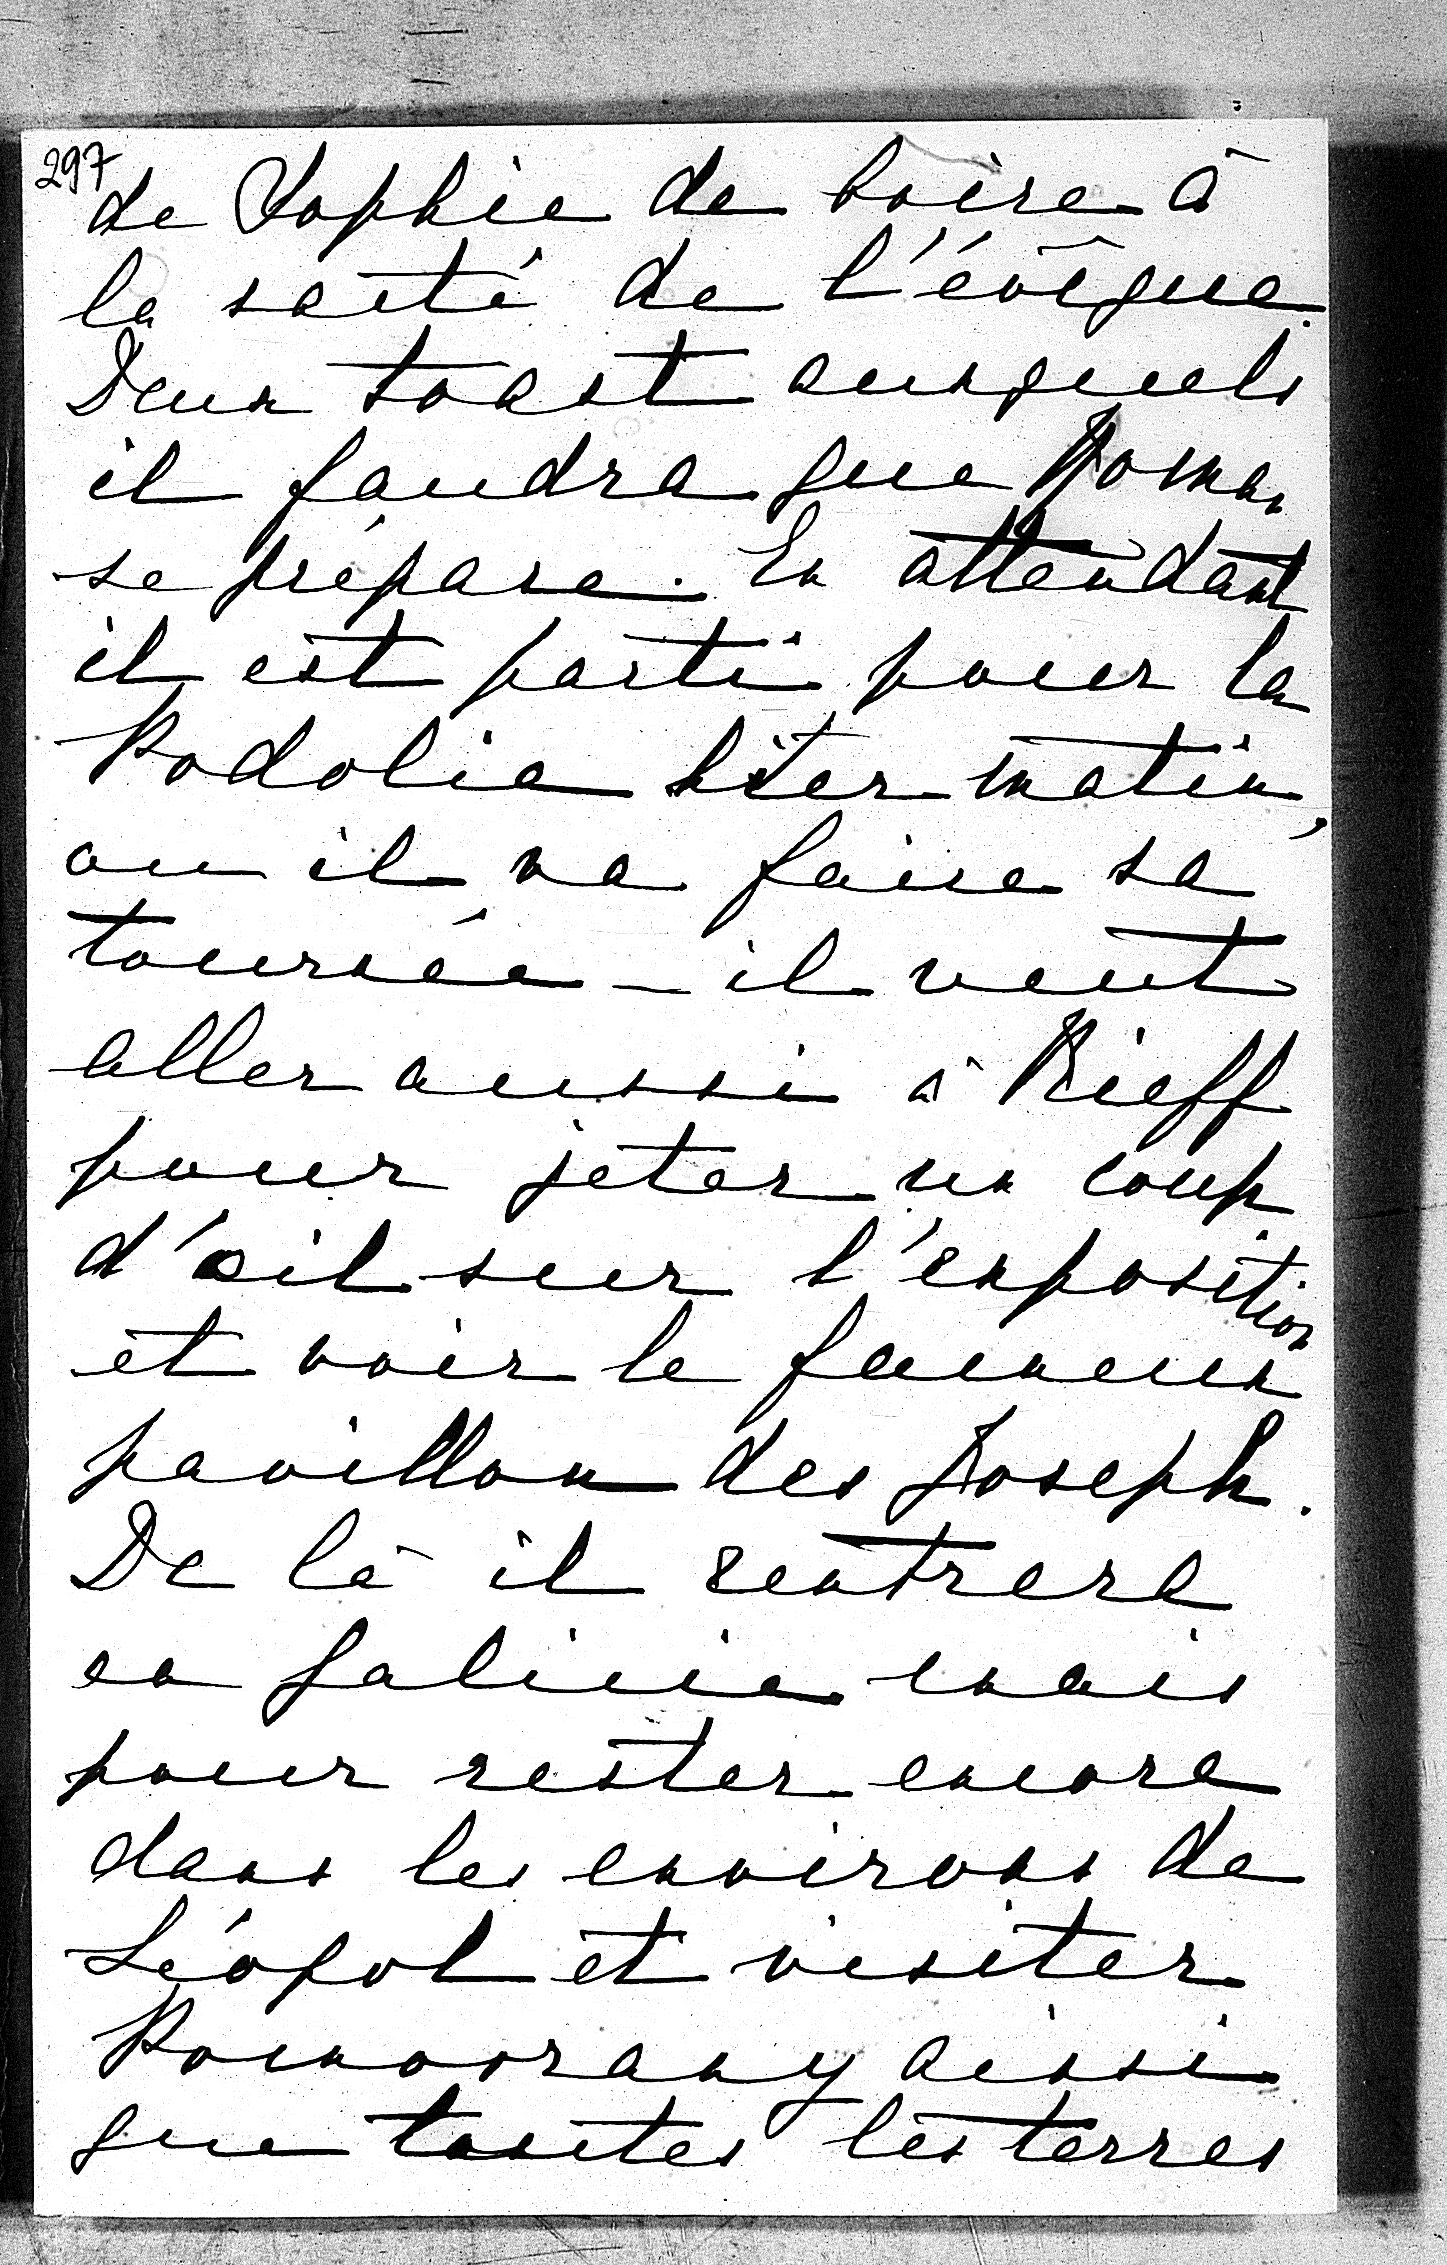 297
de Sophie de boire à
la santé de l'évêque.
Deux toast auxquels
il faudra que Roman
se prépare. En attendant
il est parti pour la
Podolie hier matin,
ou il va faire sa
tournée – il veut
aller aussi à Kieff
pour jeter un coup
d'œil sur l'exposition
et voir le fameux
pavillon des Joseph.
De là il rentrera
en Galicie mais
pour rester encore
dans les environs de
Léopol et visiter
Pomorzany ainsi
que toutes les terres